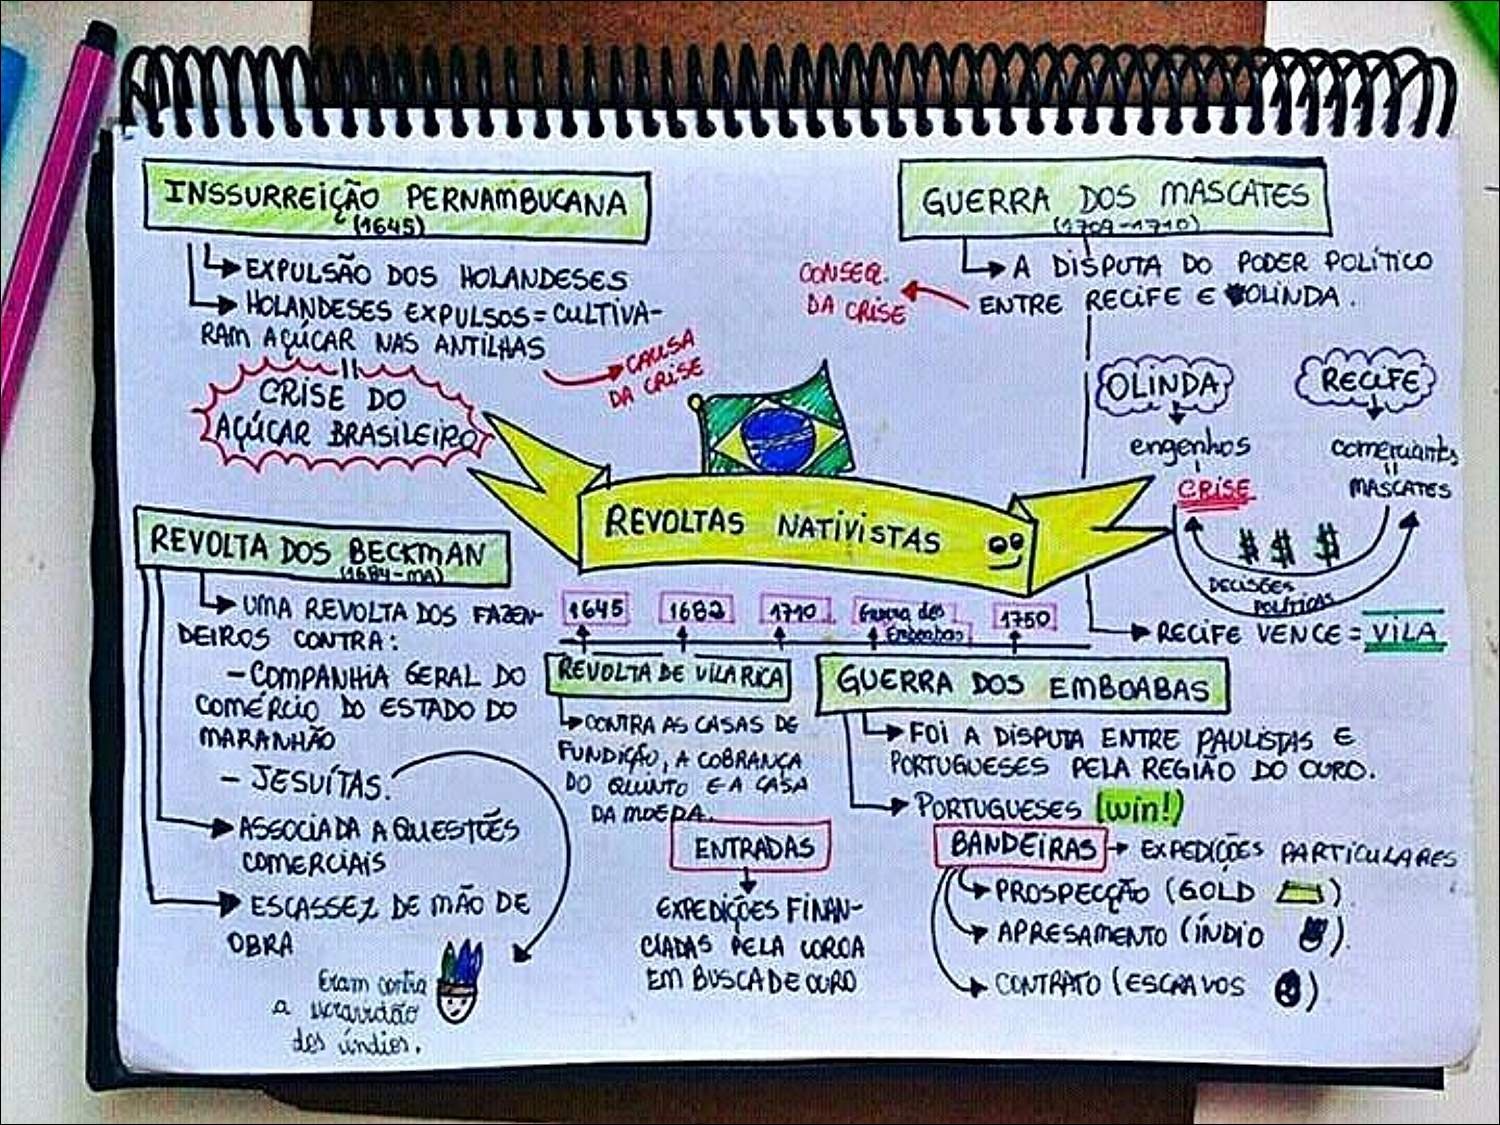 INSSURREIÇÃO PERNAMBUCANA
(1645)
EXPULSÃO DOS HOLANDESES
HOLANDESES EXPULSOS = CULTIVA-
RAM AÇÚCAR NAS ANTILHAS
CAUSA
DA CRISE
CRISE DO
AÇÚCAR BRASILEIRO
GUERRA DOS MASCATES
(1709-1710)
A DISPUTA DO PODER POLÍTICO
ENTRE RECIFE E OLINDA.
CONSEQ.
DA CRISE
OLINDA
RECIFE
engenhos
comerciantes
CRISE
MASCATES
$ $ $
DECISÕES
POLÍTICAS
RECIFE VENCE = VILA
REVOLTAS NATIVISTAS
REVOLTA DOS BECKMAN
(1684-MA)
UMA REVOLTA DOS FAZEN-
DEIROS CONTRA:
- COMPANHIA GERAL DO
COMÉRCIO DO ESTADO DO
MARANHÃO
- JESUÍTAS.
ASSOCIADA A QUESTÕES
COMERCIAIS
ESCASSEZ DE MÃO DE
OBRA
Eram contra
a escravidão
dos índios.
1645 1682 1710 Guerra dos
Emboabas 1750
REVOLTA DE VILA RICA
CONTRA AS CASAS DE
FUNDIÇÃO, A COBRANÇA
DO QUINTO E A CASA
DA MOEDA.
GUERRA DOS EMBOABAS
FOI A DISPUTA ENTRE PAULISTAS E
PORTUGUESES PELA REGIÃO DO OURO.
PORTUGUESES (win!)
ENTRADAS
EXPEDIÇÕES FINAN-
CIADAS PELA COROA
EM BUSCA DE OURO
BANDEIRAS → EXPEDIÇÕES PARTICULARES
PROSPECÇÃO (GOLD )
APRESAMENTO (ÍNDIO ).
CONTRATO (ESCRAVOS )